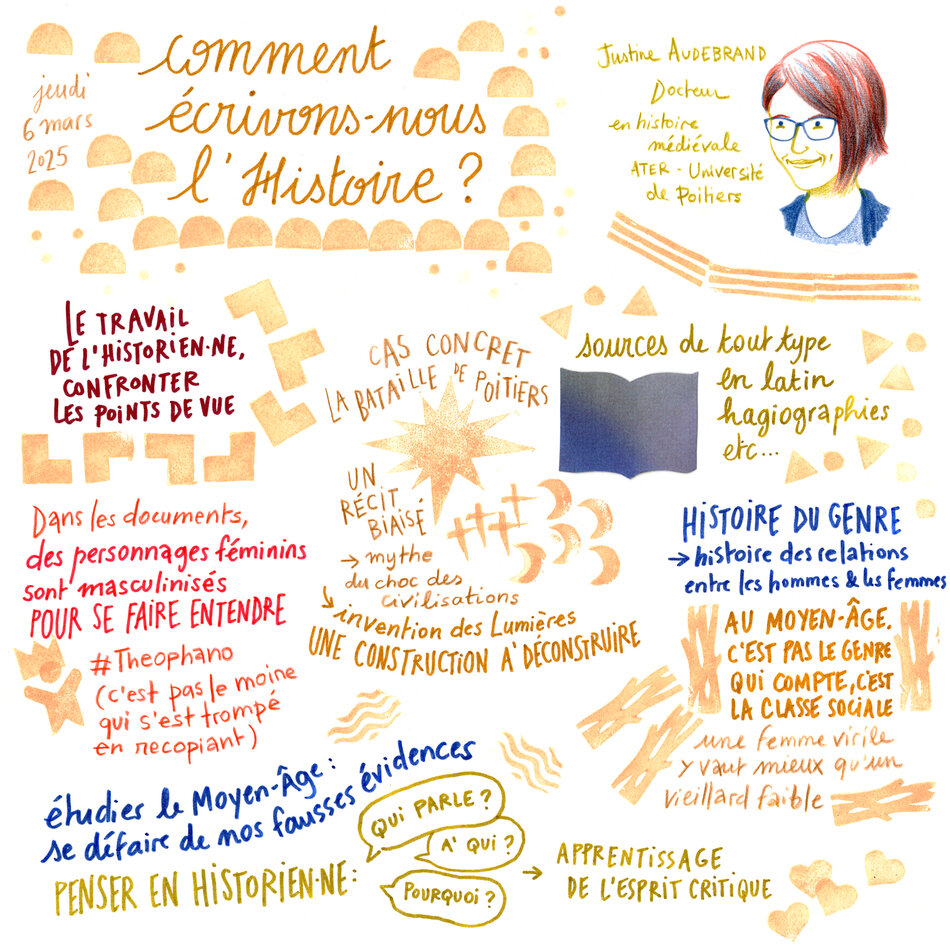 comment
écrivons-nous
l'Histoire ?
jeudi
6 mars
2025
Justine AUDEBRAND
Docteur
en histoire
médiévale
ATER - Université
de Poitiers
LE TRAVAIL
DE L'HISTORIEN·NE,
CONFRONTER
LES POINTS DE VUE
CAS CONCRET
LA BATAILLE DE POITIERS
UN
RÉCIT
BIAISÉ
→ mythe
du choc des
civilisations
→ invention des Lumières
UNE CONSTRUCTION À DÉCONSTRUIRE
sources de tout type
en latin
hagiographies
etc...
Dans les documents,
des personnages féminins
sont masculinisés
POUR SE FAIRE ENTENDRE
#Theophano
(c'est pas le moine
qui s'est trompé
en recopiant)
HISTOIRE DU GENRE
→ histoire des relations
entre les hommes & les femmes
AU MOYEN-ÂGE.
C'EST PAS LE GENRE
QUI COMPTE, C'EST
LA CLASSE SOCIALE
une femme virile
y vaut mieux qu'un
vieillard faible
étudier le Moyen-Âge :
se défaire de nos fausses évidences
PENSER EN HISTORIEN·NE :
QUI PARLE ?
À QUI ?
POURQUOI ?
→ APPRENTISSAGE
DE L'ESPRIT CRITIQUE